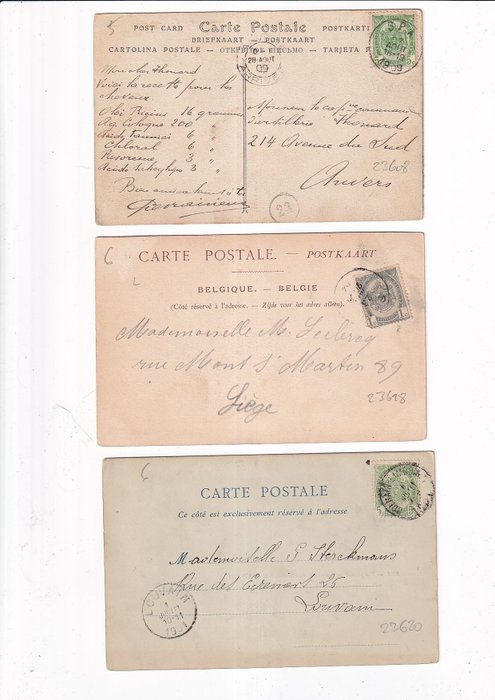 5
POST CARD Carte Postale POSTKARTE
BRIEFKAART — POSTKAART
CARTOLINA POSTALE — ОТКРЫТОЕ ПИСЬМО — TARJETA
SPA
AOUT
1909
28 AOUT
09
ANVERS
Mon cher Thonard
Voici la recette pour les
cheveux
Olei Ricini 16 grammes
Aq. Cologne 200 "
Acidi tannici 6 "
Chloral 6 "
Resorcine 3 "
Acide salicylique 3 "
Monsieur le cap. commandant
d'artillerie Thonard
214 Avenue du Sud
Anvers
23608
23
6
CARTE POSTALE. — POSTKAART
BELGIQUE. — BELGIE
(Côté réservé à l'adresse. — Zijde voor het adres alleen).
Mademoiselle M. Leclercq
rue Mont St Martin 89
Liège
23618
6
CARTE POSTALE
Ce côté est exclusivement réservé à l'adresse
Mademoiselle G Sterckmans
Rue des 25
Louvain
LOUVAIN
1
10-11
1901
23620